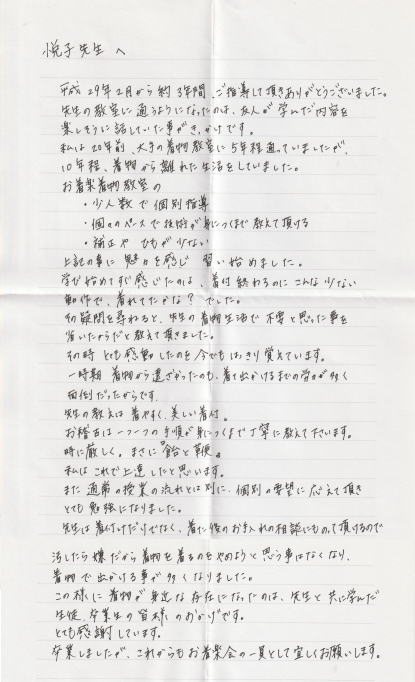 悦子先生へ
平成29年2月から約3年間、ご指導して頂きありがとうございました。
先生の教室に通うようになったのは、友人が学んだ内容を
楽しそうに話していた事がきっかけです。
私は20年前、大手の着物教室に5年程通っていましたが、
10年程、着物から離れた生活をしていました。
お着楽着物教室の
・少人数で個別指導
・個々のペースで技術が身につくまで教えて頂ける
・補正や ひもが少ない
上記の事に魅力を感じ 習い始めました。
学び始めてすぐ感じたのは、着付け終わるのにこんな少ない
動作で、着れてたかな？でした。
その疑問を尋ねると、先生の着物生活で不要と思った事を
省いたからだと教えて頂きました。
その時 とても感動したのを今でもはっきり覚えています。
一時期 着物から遠ざかったのも、着て出かけるまでの労力が多く
面倒だったからです。
先生の教えは着やすく、美しい着付。
お稽古は一つ一つの手順が身につくまで丁寧に教えて下さいます。
時に厳しく。まさに『飴と鞭』。
私はこれで上達したと思います。
また通常の授業の流れとは別に、個別の要望に応えて頂き
とても勉強になりました。
先生は着付けだけでなく、着た後のお手入れの相談にものって頂けるので
汚したら嫌だから着物を着るのをやめようと思う事はなくなり、
着物で出かける事が多くなりました。
この様に着物が身近な存在になったのは、先生と共に学んだ
生徒、卒業生の皆様のおかげです。
とても感謝しています。
卒業しましたが、これからもお着楽会の一員として宜しくお願いします。